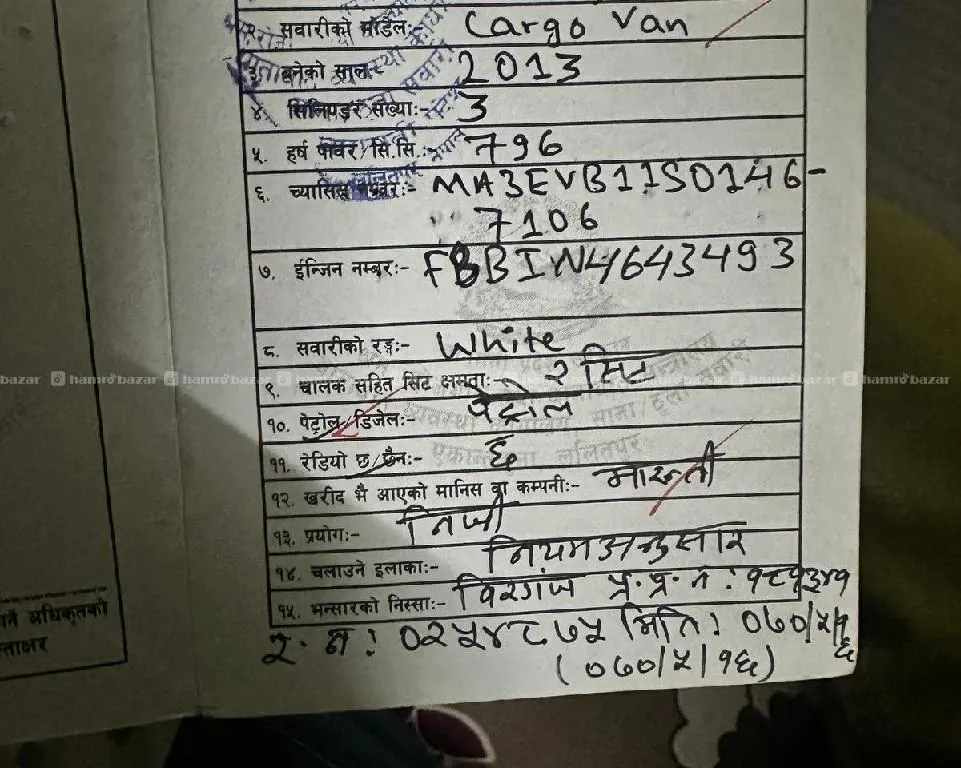 २. सवारीको मोडेल:- Cargo Van
३. बनेको साल:- 2013
४. सिलिण्डर संख्या:- 3
५. हर्ष पावर/सि.सि.:- 796
६. च्यासिस नम्बर:- MA3EVB11S0146-
7106
७. ईन्जिन नम्बर:- F8BIN4643493
८. सवारीको रङ्ग:- White
९. चालक सहित सिट क्षमता:- २ सिट
hamrobazar hamrobazar hamrobazar hamrobazar hamrobazar hamrobazar hamrobazar
१०. पेट्रोल/डिजेल:- पेट्रोल
११. रेडियो छ/छैन:- छ
१२. खरीद भै आएको मानिस वा कम्पनी:- मारुती
१३. प्रयोग:- निजी
१४. चलाउने इलाका:- नियमअनुसार
१५. भन्सारको निस्सा:- विरगंज प्र.प्र.नं:
र.नं: ०२५४८७५ मिति: ०७०/५/१६
(०७०/५/१६)
गर्ने अधिकृतको
स्ताक्षर